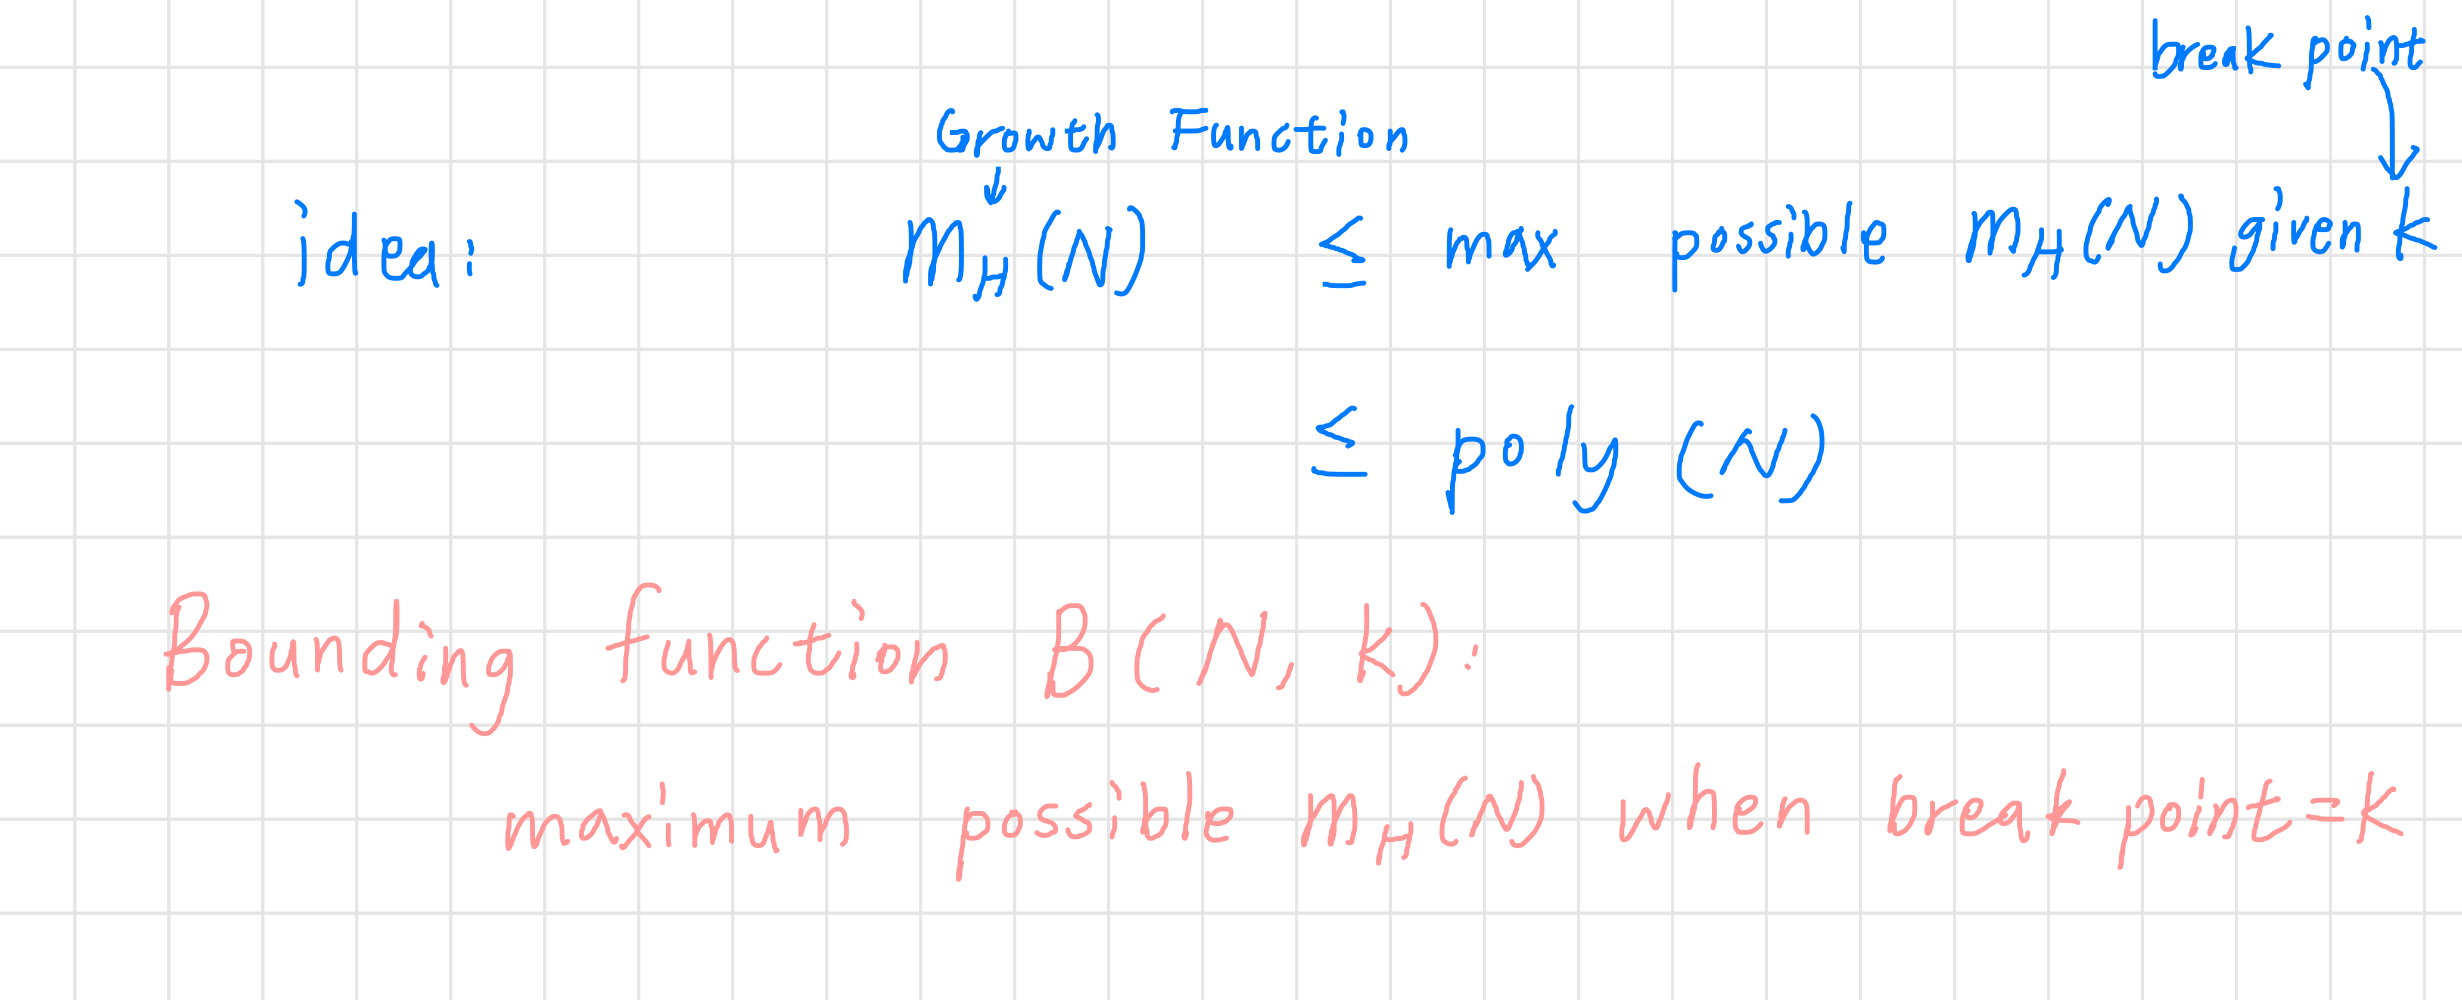 break point
Growth Function
idea: m_H(N) ≤ max possible m_H(N) given k
≤ poly(N)
Bounding function B(N, k):
maximum possible m_H(N) when break point = k